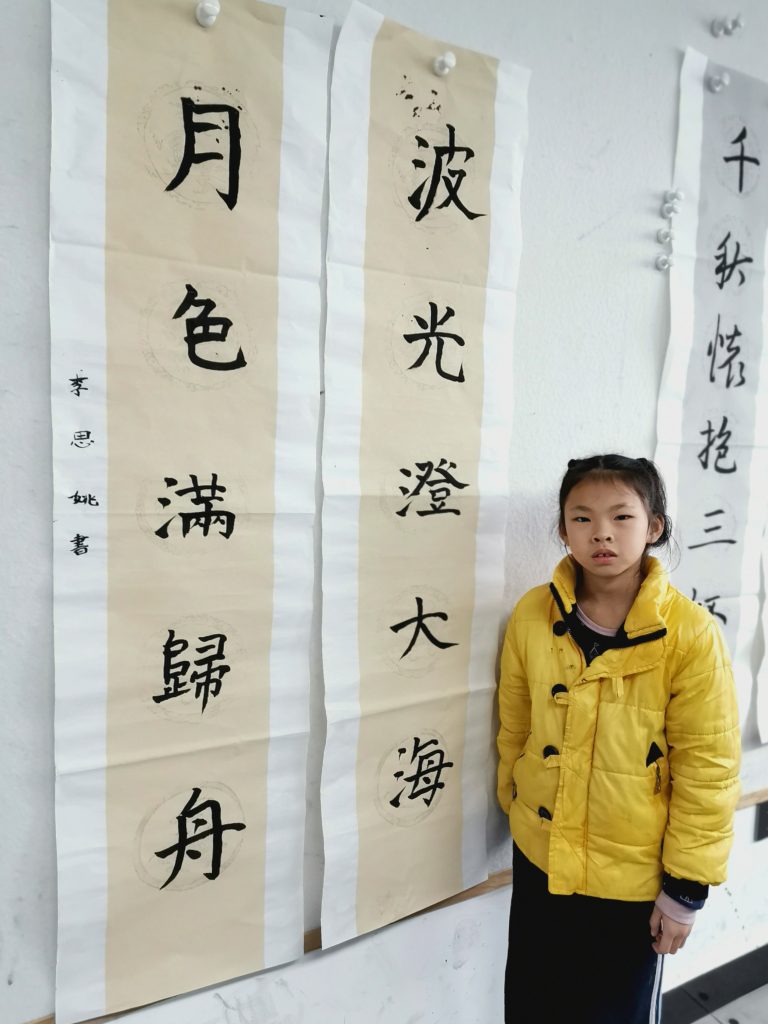 千秋懷抱三
波光澄大海
月色滿歸舟
李思姚書